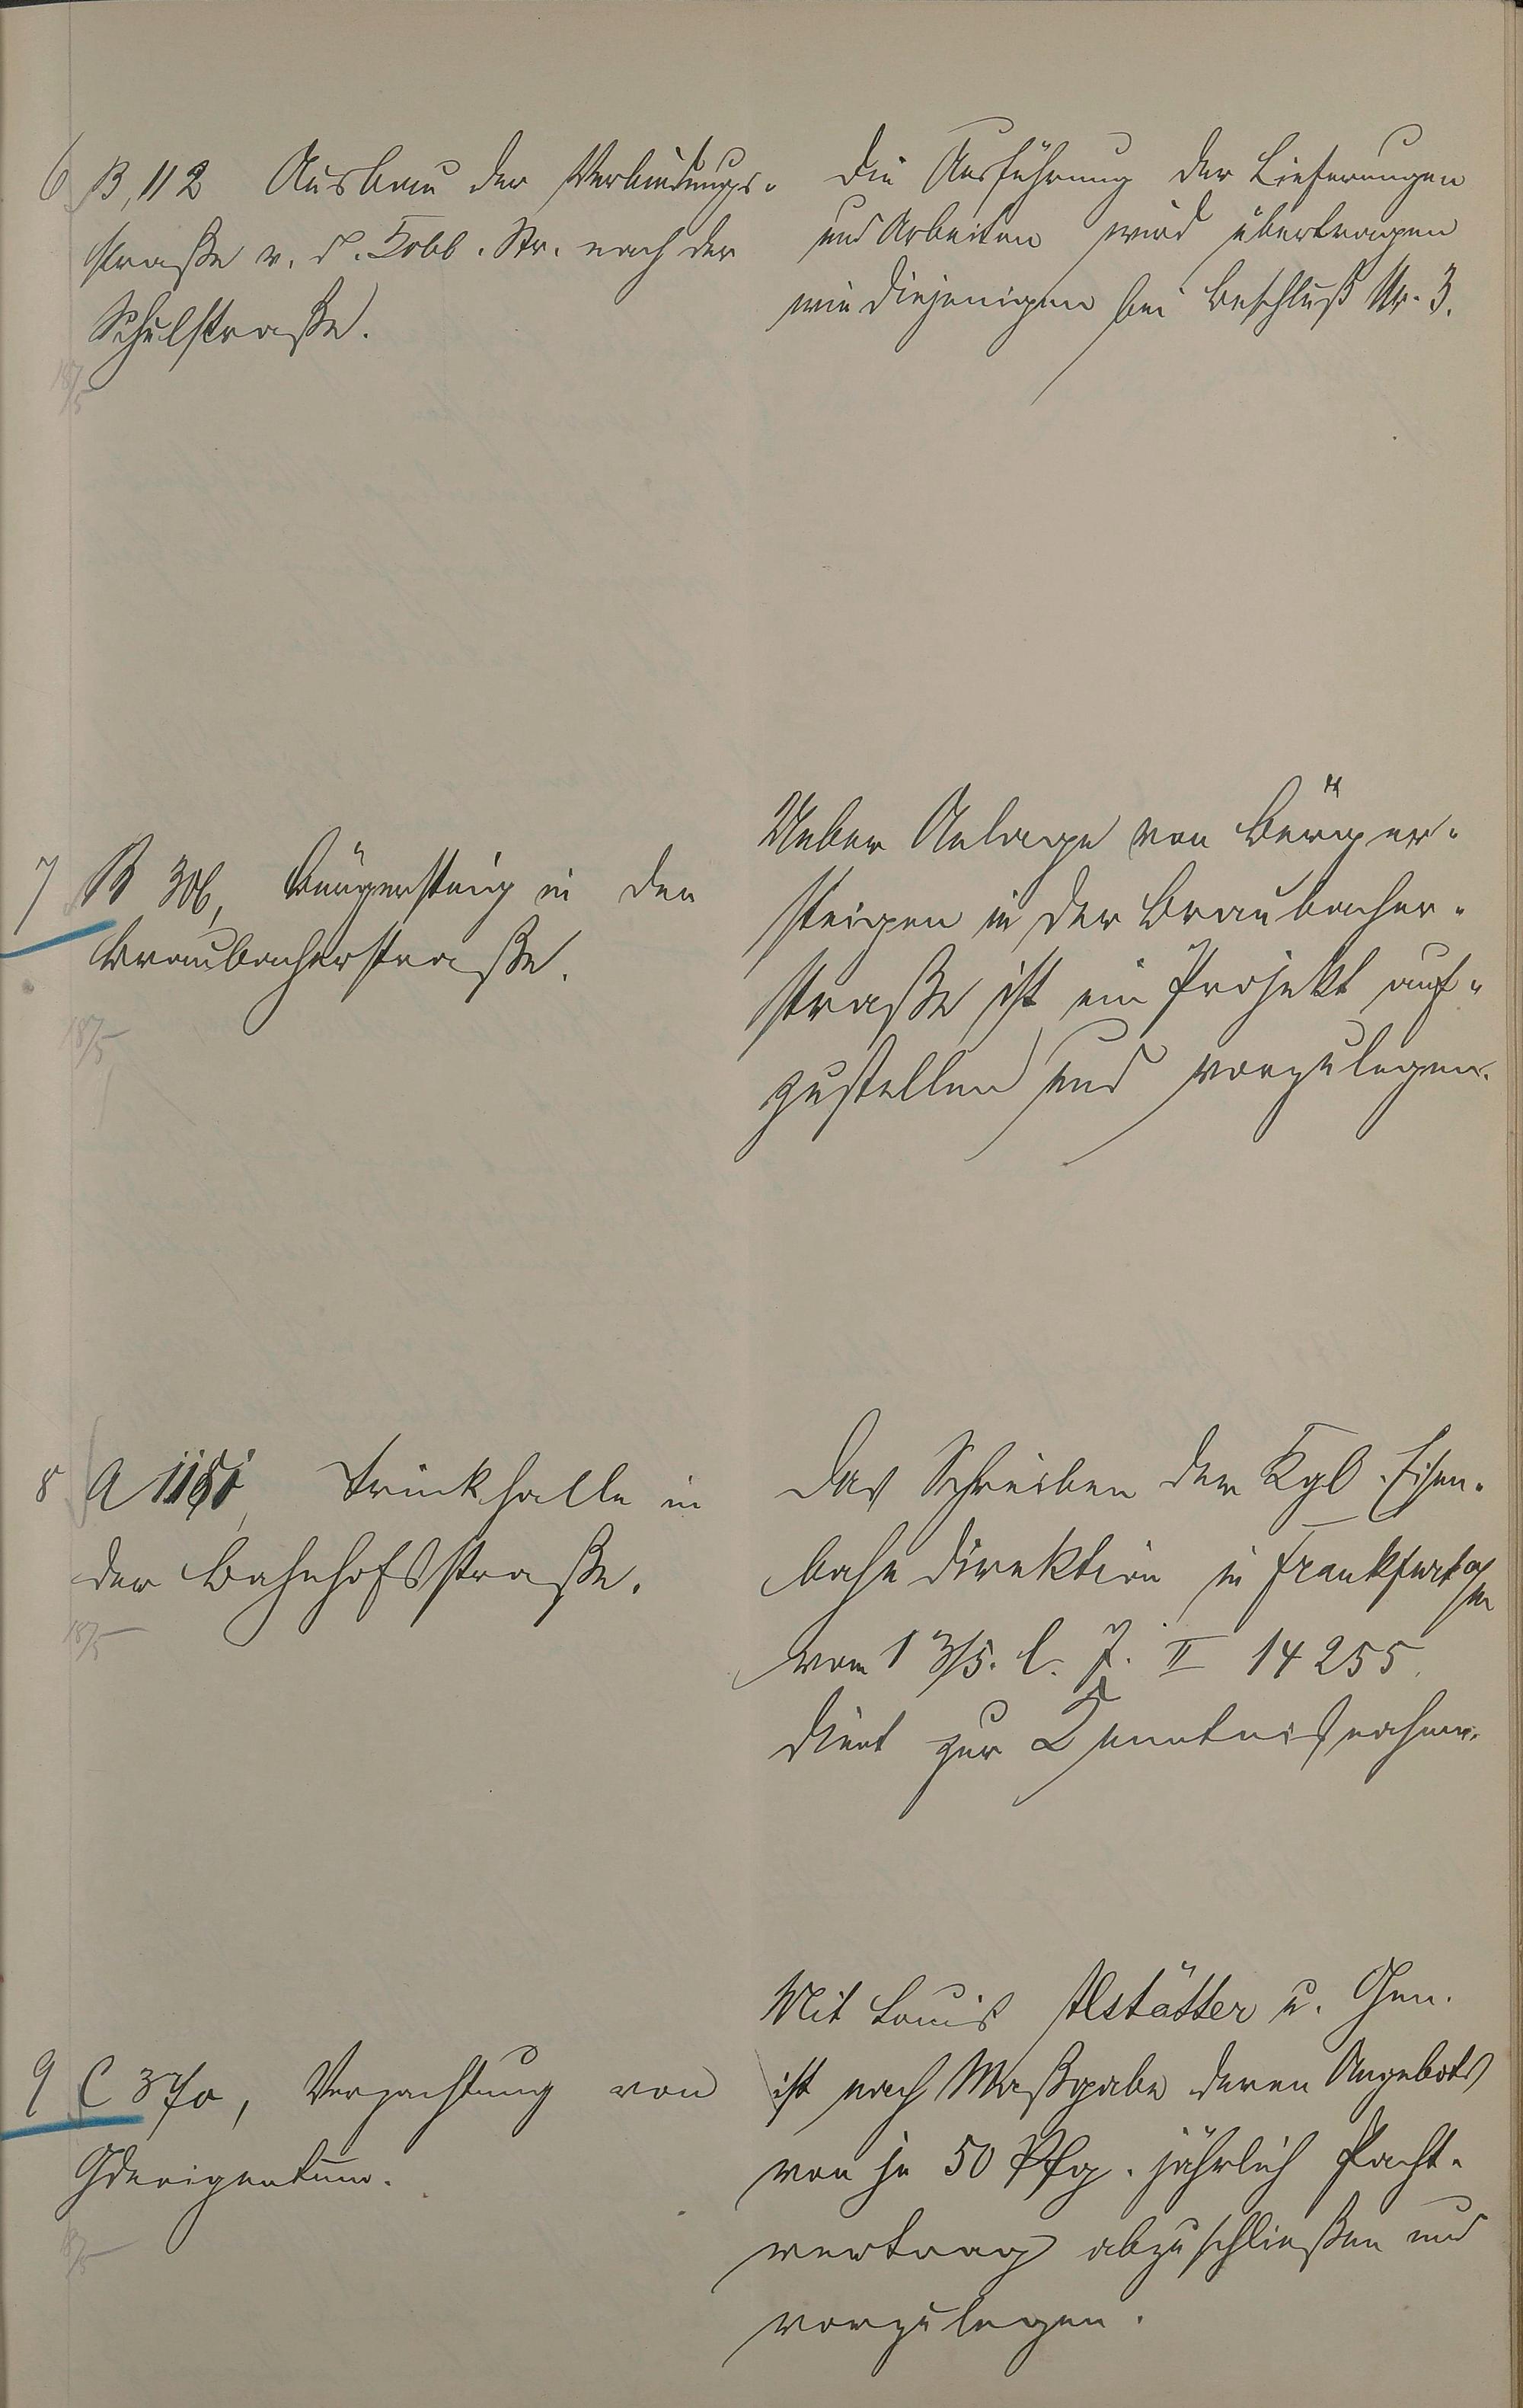 6 B, 112 Ausbau der Verbindungs-
straße v. d. Cobl. Str. nach der
Schulstraße.
18/5
Die Ausführung der Lieferungen
und Arbeiten wird übertragen
wie diejenigen bei Beschluß Nr. 3.
7 B 306, Bürgersteig in der
Braubacherstraße.
18/5
Ueber Anlage von Bürger-
steigen in der Braubacher-
straße ist ein Projekt auf-
zustellen und vorzulegen.
8 A Trinkhalle in
der Bahnhofsstraße.
18/5
Das Schreiben der Kgl. Eisen-
bahn direktion in Frankfurt a/M
vom 13/5. l. J. II 14255
dient zur Kenntnißnahme.
9 C 370, Verpachtung von
Gdeeigentum.
18/5
Mit Louis Alstätter u. Gen.
ist nach Maßgabe deren Angebots
von je 50 Pfg. jährlich Pacht-
vertrag abzuschließen und
vorzulegen.